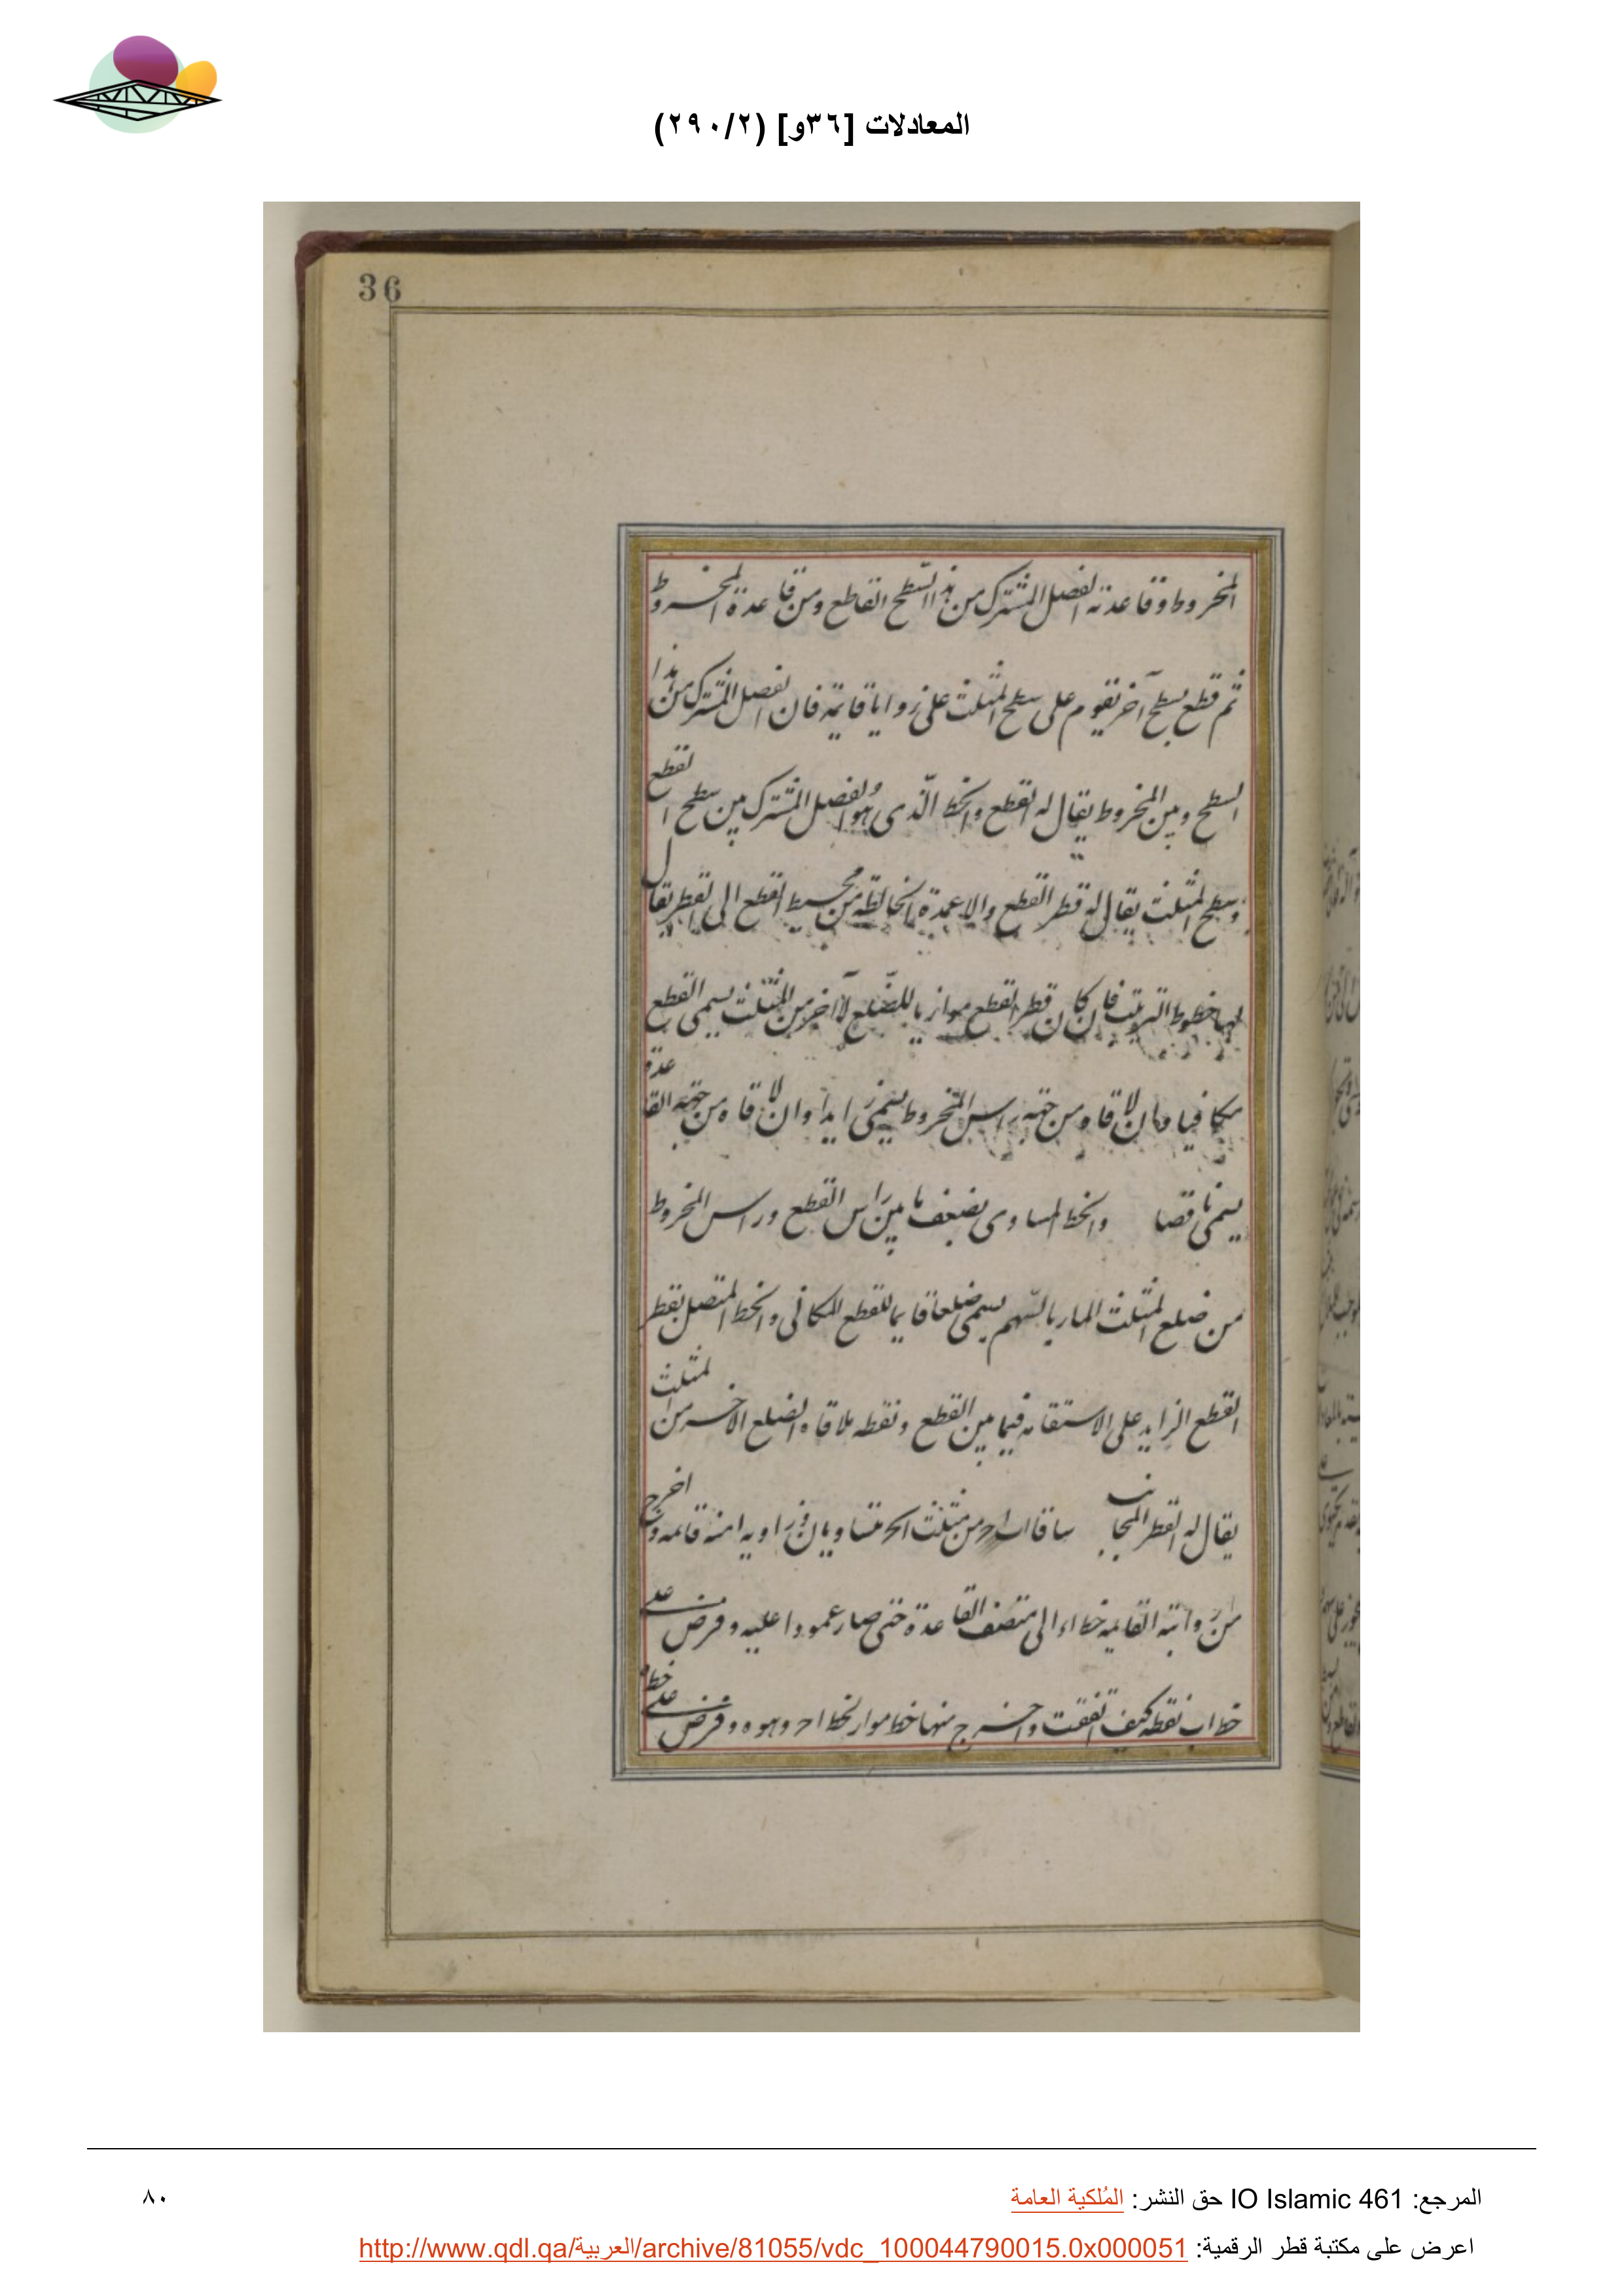 المعادلات [٣٦و] (٢٩٠/٢)
36
المخروط وقاعدته الفصل المشترك من هذا السطح القاطع ومن قاعدة المخروط
ثم قطع بسطح آخر تقوم على سطح المثلث على زوايا قايمة فان الفصل المشترك من هذا
السطح وبين المخروط يقال له القطع والخط الذى هو الفصل المشترك بين سطح القطع
وسطح المثلث يقال له قطر القطع والاعمدة من محيط القطع الى القطر يقال
لها خطوط الترتيب فان كان قطر القطع موازيا للضلع الآخر من المثلث يسمى القطع
مكافيا وان لاقاه من جهة راس المخروط يسمى زايدا وان لاقاه من جهة القاعدة
يسمى ناقصا والخط المساوى بضعف ما بين راس القطع وراس المخروط
من ضلع المثلث المار بالسهم يسمى ضلعا قايما للقطع المكافى والخط المتصل بقطر
القطع الزايد على الاستقامه فيما بين القطع ونقطه ملاقاه الضلع الاخر من المثلث
يقال له القطر المجانب ساقا اب اح من مثلث متساويان وزاويه امنه قائمه واخرج
من القايمه خط اء الى منتصف القاعدة حتى صار عمودا عليه وفرض على
خط اب نقطه كيف اتفقت واخرج منها خط مواز لخط اح وهو ه وفرض على خط
المرجع: IO Islamic 461 حق النشر: المُلكية العامة
٨٠
اعرض على مكتبة قطر الرقمية: http://www.qdl.qa/العربية/archive/81055/vdc_100044790015.0x000051